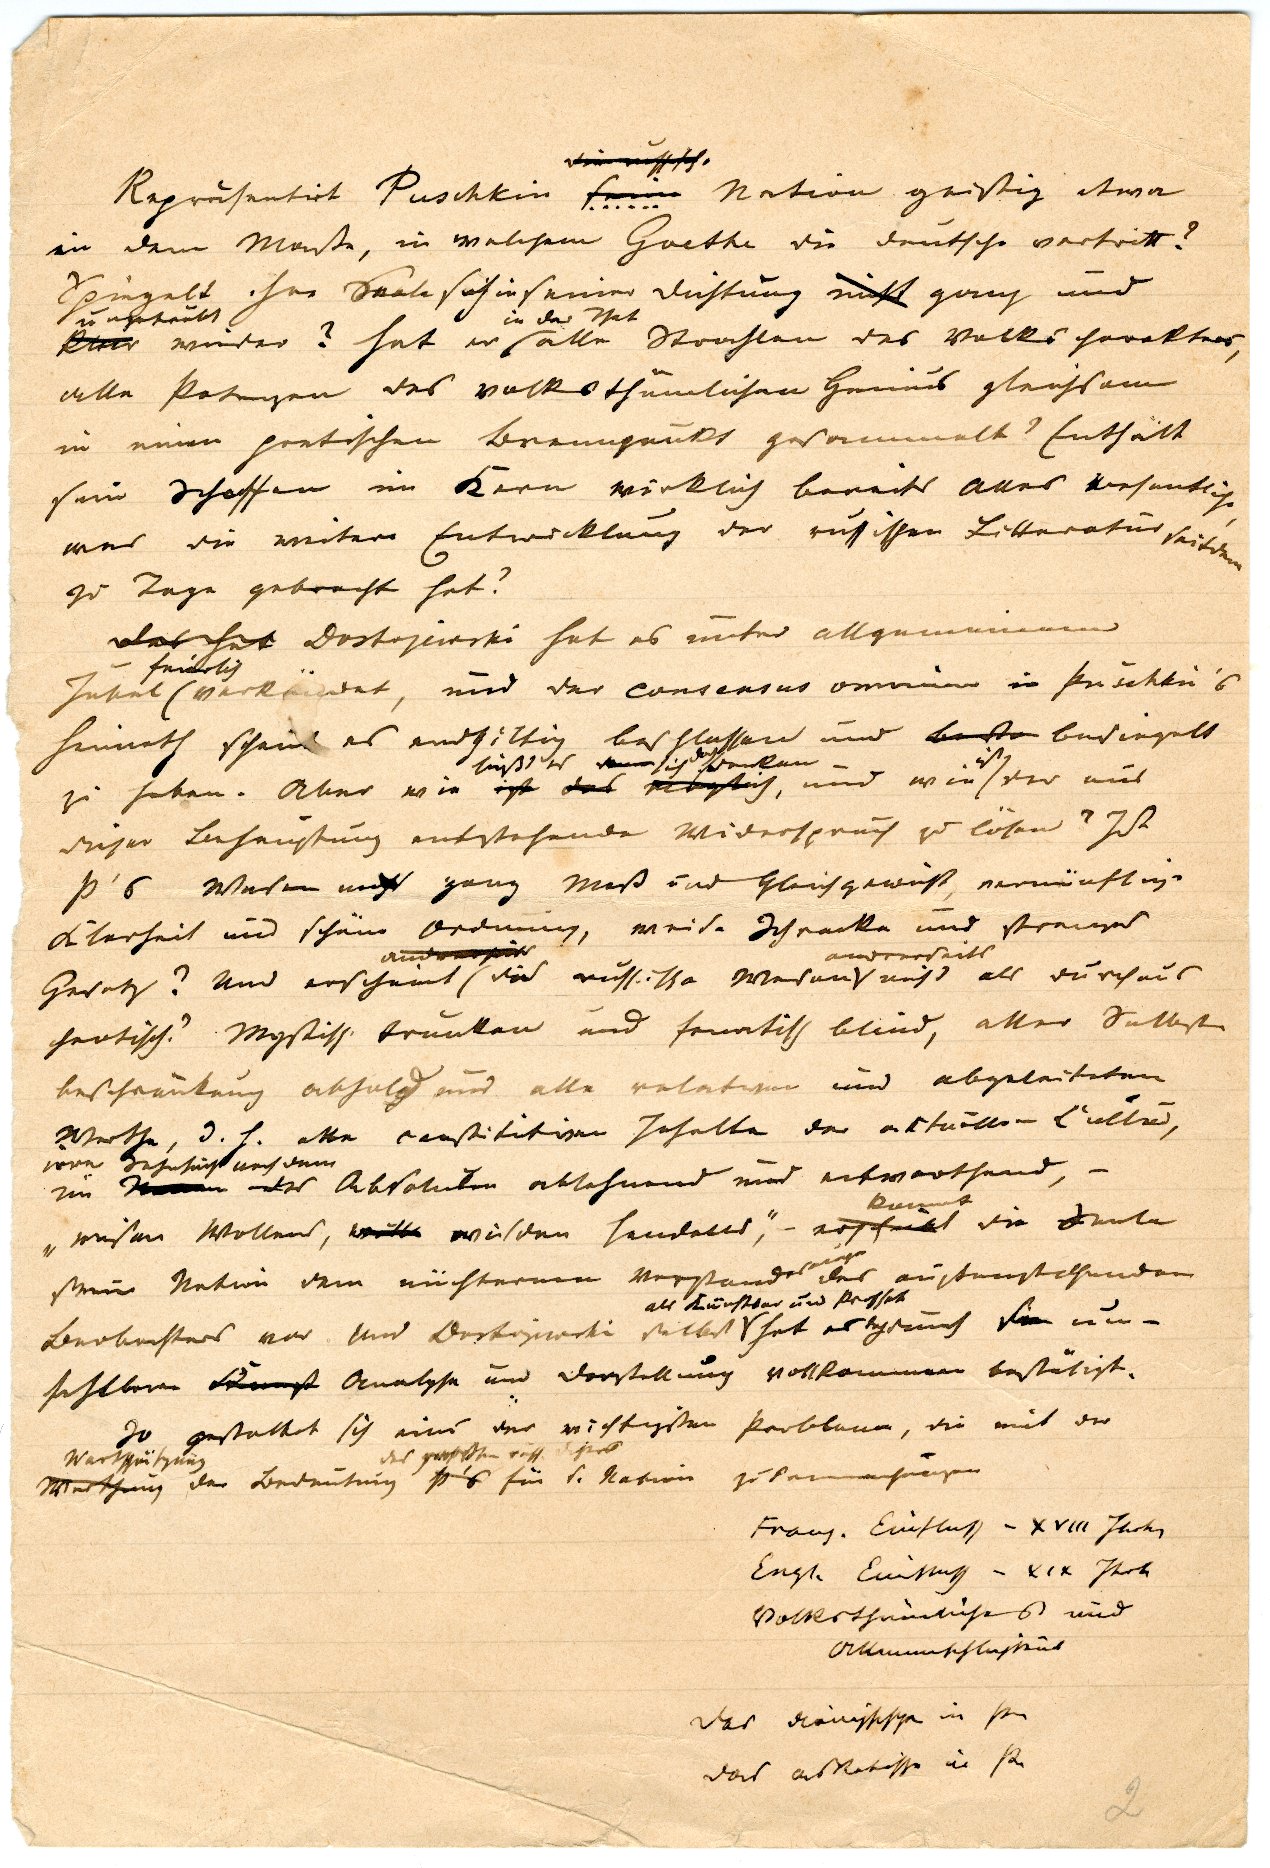 die russisch.
Repräsentirt Puschkin seine Nation geistig etwa
in dem Masse, in welchem Goethe die deutsche vertritt?
Spiegelt ihre Seele sich in seiner Dichtung nicht ganz und
ungetrübt in der That
klar wieder? Hat er alle Strahlen des Volkscharakters,
alle Potenzen des volksthümlichen Genius gleichsam
in einem poetischen Brennpunkt gesammelt? Enthält
sein Schaffen im Kern wirklich bereits Alles Wesentliche,
was die weitere Entwicklung der russischen Litteratur seitdem
zu Tage gebracht hat?
Das hat Dostojewski hat es unter allgemeinem
feierlich
Jubel verkündet, und der consensus omnium in Puschkin's
Heimath scheint es endgiltig beschlossen und besiegelt
lässt es sich doch denken ist
zu haben. Aber wie ist das möglich, und wie der aus
dieser Behauptung entstehende Widerspruch zu lösen? Ist
P's Wesen nicht ganz Maß und Gleichgewicht, vernünftige
Klarheit und schöne Ordnung, weise Schranke und strenges
andrerseits
Gesetz? Und erscheint das russische Wesen nicht als durchaus
chaotisch? Mystisch trunken und fanatisch blind, aller Selbst-
beschränkung abhold und alle relativen und abgeleiteten
Werthe, d. h. alle constitutiven Inhalte der actuellen Cultur,
ihrer Sehnsucht nach dem
im Namen des Absoluten ablehnend und entwerthend, –
kommt
„weisen Wollens, wilden Handelns", – die Seele
seiner Nation dem nüchternen Verstande des außenstehenden
als Künstler und Prophet
Beobachters vor. Und Dostojewski selbst hat es durch un-
fehlbare Kunst Analyse und Darstellung vollkommen bestätigt.
So gestaltet sich eins der wichtigsten Probleme, die mit der
Wertschätzung des größten russ. Dichters
Werthung der Bedeutung P's für s. Nation zusammenhängen
Franz. Einfluss – XVIII Jhrh
Engl. Einfluss – XIX Jhrh
Volksthümliches und
Allmenschlichkeit
Das dionysische in P.
das asketische in P.
2